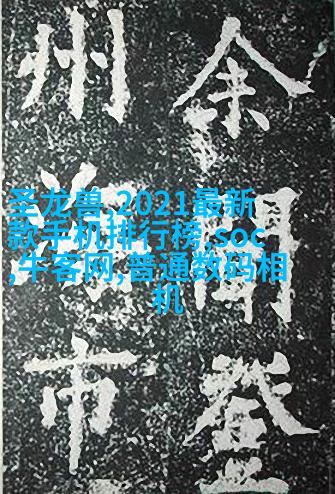 余聞登
州市
圣龙兽,2021最新
款手机排行榜,soc
,牛客网,普通数码相
机